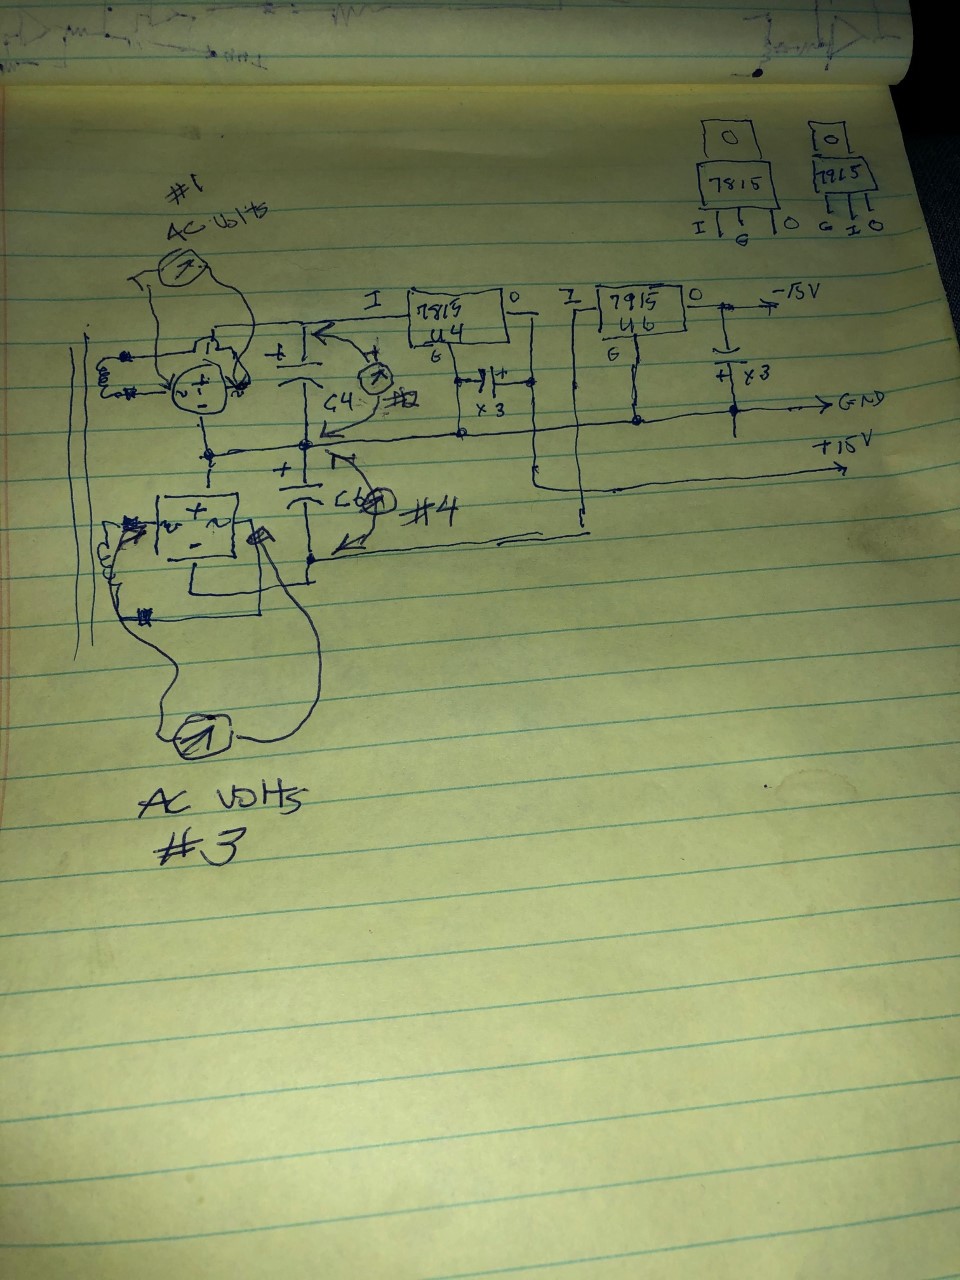 #1
AC Volts
O
7815
I G O
O
7915
G I O
I
7815
U4
O
G
+
x3
I
7915
U6
O
G
-15V
+ x3
GND
+15V
+
-
+
C4
+
#2
+
C6
#4
+
-
AC VOLTS
#3